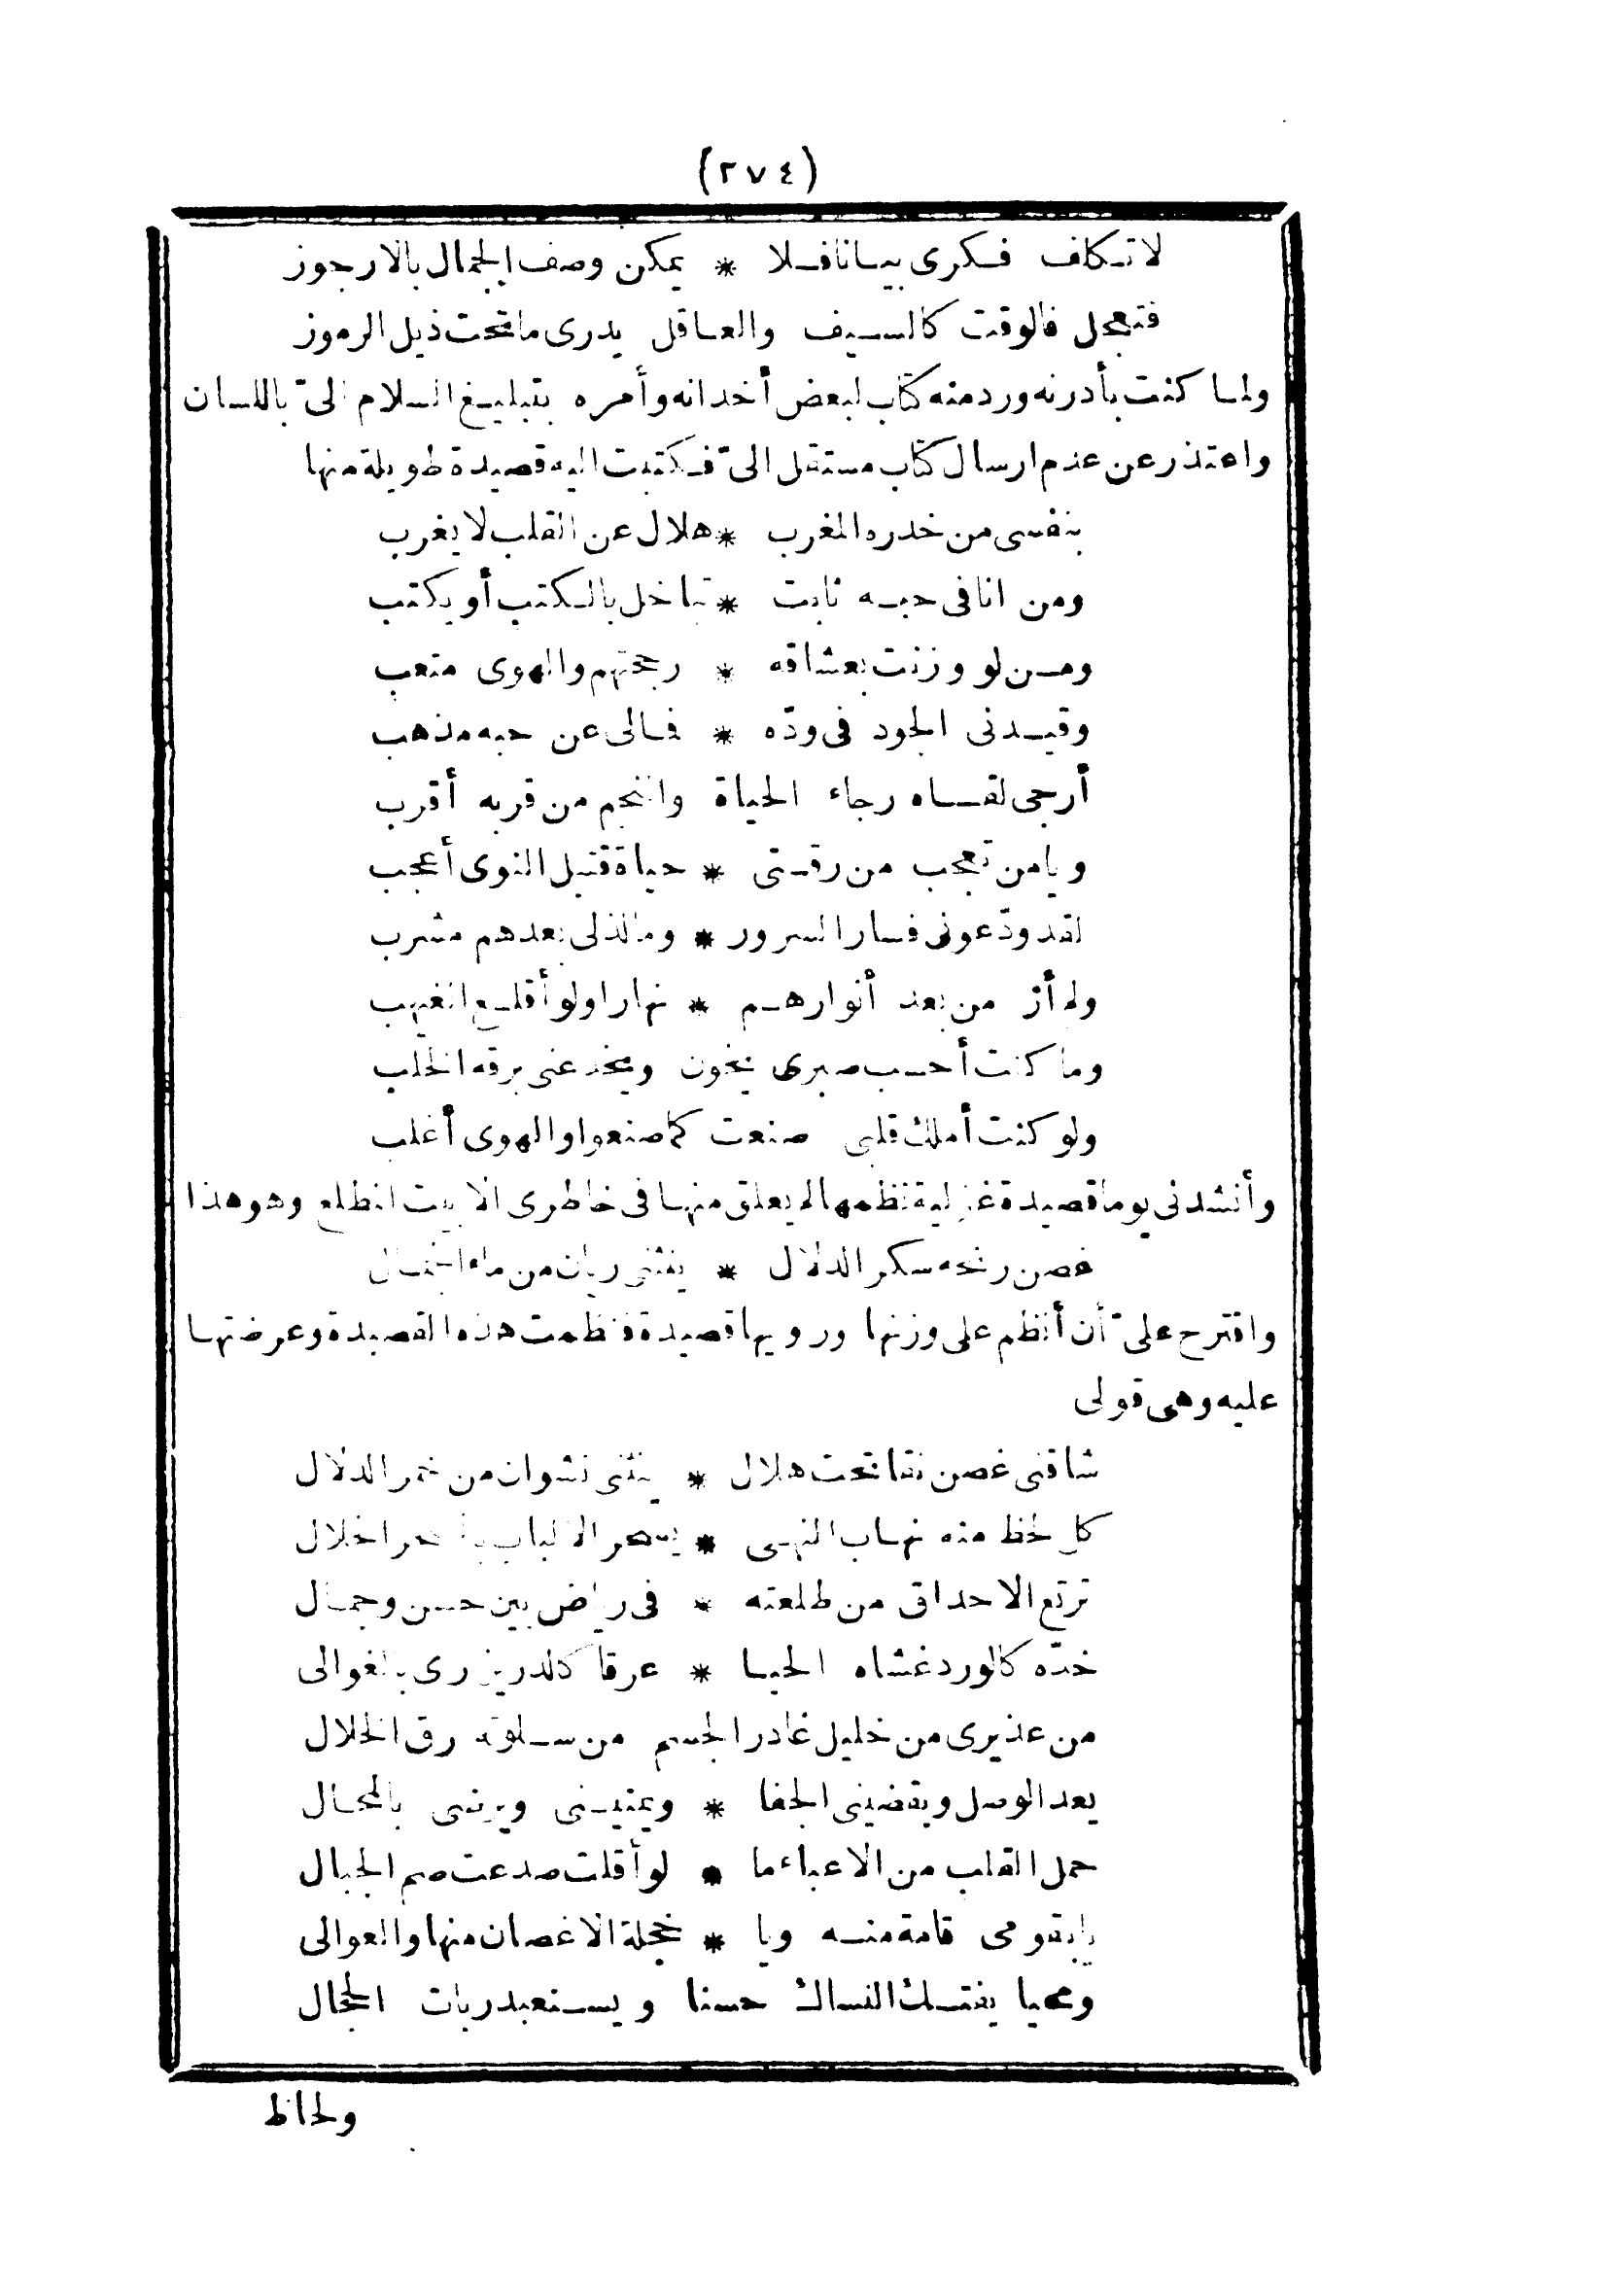 (٢٧٤)
لا تكلف فكرى بيانا فلا * يمكن وصف الجمال بالارجوز
فتعجل فالوقت كالسيف والعاقل يدرى ما تحت ذيل الرموز
ولما كنت بأدرنه ورد منه كتاب لبعض أخدانه وأمره بتبليغ السلام الىّ باللسان
واعتذر عن عدم ارسال كتاب مستقل الىّ فكتبت اليه قصيدة طويلة منها
بنفسى من خدره المغرب * هلال عن القلب لا يغرب
ومن انا فى حبه ثابت * تباخل بالكتب أو يكتب
ومن لو وزنت بعشاقه * رجحتهم والهوى متعب
وقيدنى الجود فى ودّه * فمالى عن حبه مذهب
أرجى لقاه رجاء الحياة والنجم من قربه أقرب
ويا من تعجب من رقتى * حياة قتيل النوى أعجب
لقد ودّعونى فسار السرور * وما لذلى بعدهم مشرب
ولم أر من بعد أنوارهم * نهارا ولو أقلع الغيهب
وما كنت أحسب صبرى يخون ويخدعنى برقه الخلب
ولو كنت أملك قلبى صنعت كما صنعوا والهوى أغلب
وأنشدنى يوما قصيدة غزلية نظمها لم يعلق منها فى خاطرى الا بيت المطلع وهو هذا
غصن رنحه سكر الدلال * ينثنى ريان من ماء الجمال
واقترح علىّ أن أنظم على وزنها ورويها قصيدة فنظمت هذه القصيدة وعرضتها
عليه وهى قولى
شاقنى غصن نقا تحت هلال * ينثنى نشوان من خمر الدلال
كل لحظ منه نهاب النهى * يسحر الالباب بالسحر الحلال
ترتع الاحداق من طلعته * فى رياض بين حسن وجمال
خدّه كالورد غشاه الحيا * عرقا كالدر يزرى بالغوالى
من عذيرى من خليل غادر الجسم من سلوته رق الخلال
يعد الوصل ويقضينى الجفا * ويمنينى ويرضى بالمحال
حمل القلب من الاعباء ما * لو أقلت صدعت صم الجبال
يا بقومى قامة منه ويا * خجلة الاغصان منها والعوالى
ومحيا يفتك النساك حسنا ويستعبد ربات الحجال
ولحاظ